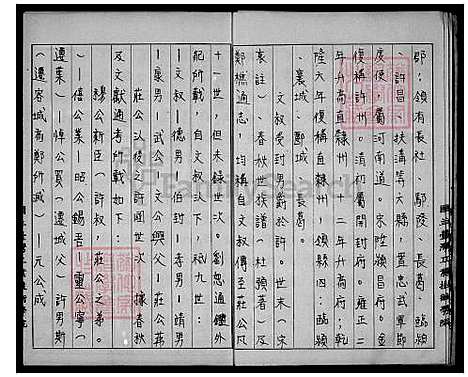 郡,領有長社、鄢陵、長葛、臨潁
、許昌、扶溝等六縣,置忠武軍節
度使,屬河南道。宋陞潁昌府。金
復稱許州。清初屬開封府。雍正二
年升為直隸州,十二年升為府;乾
隆六年復稱直隸州,領縣四:臨潁
、襄城、郾城、長葛。
文叔受封男爵於許。(史記集
裴註)、春秋世族譜(杜預著)及
鄭樵通志,均稱自文叔傳至莊公凡
十一世,但未錄世次。劉恕通鑑外
紀所載,自文叔以下,祇九世:
—文叔—德男—伯封—孝男—靖男
—康男—武公—文公興父—莊公茀
莊公以後之許國世次,據春秋
及文獻通考所載如下:
穆公新臣(許叔,莊公之弟。
)—僖公業—昭公錫吾—靈公寧(
遷葉)—悼公買(遷城父)許男斯
(遷容城為鄭所滅)—元公成
FamilySearch